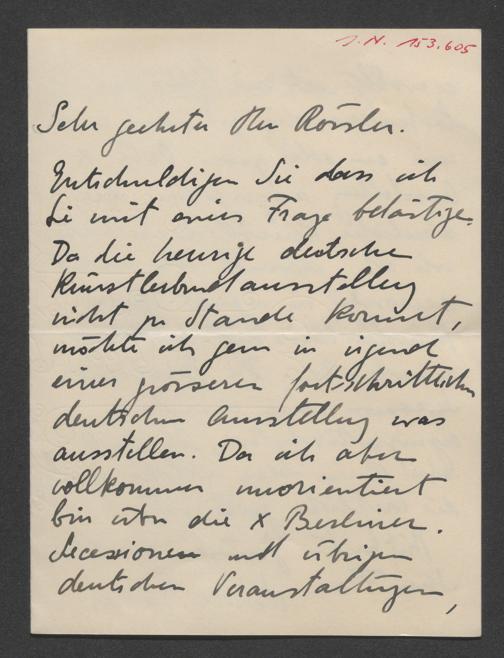 J. N. 153.605
Sehr geehrter Herr Rössler.
Entschuldigen Sie dass ich
Sie mit einer Frage belästige.
Da die heurige deutsche
Künstlerbundausstellung
nicht zu Stande kommt,
möchte ich gern in irgend
einer grösseren fortschrittlichen
deutschen Ausstellung was
ausstellen. Da ich aber
vollkommen unorientiert
bin über die x Berliner.
Secessionen und übrigen
deutschen Veranstaltungen,